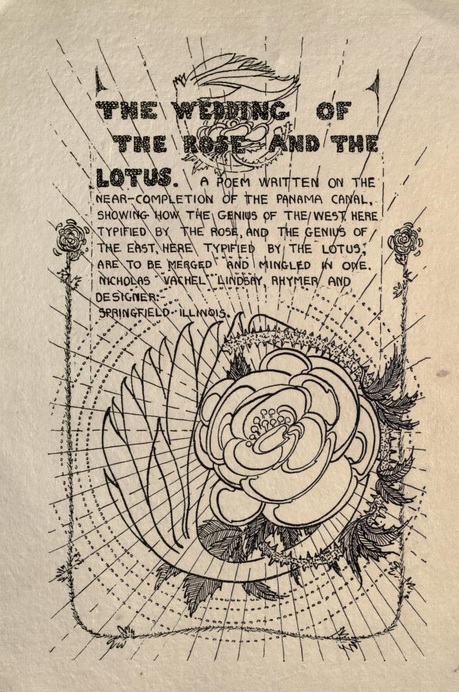 THE WEDDING OF
THE ROSE AND THE
LOTUS. A POEM WRITTEN ON THE
NEAR-COMPLETION OF THE PANAMA CANAL,
SHOWING HOW THE GENIUS OF THE WEST, HERE
TYPIFIED BY THE ROSE, AND THE GENIUS OF
THE EAST, HERE TYPIFIED BY THE LOTUS,
ARE TO BE MERGED AND MINGLED IN ONE.
NICHOLAS VACHEL LINDSAY, RHYMER AND
DESIGNER:-
SPRINGFIELD-ILLINOIS.